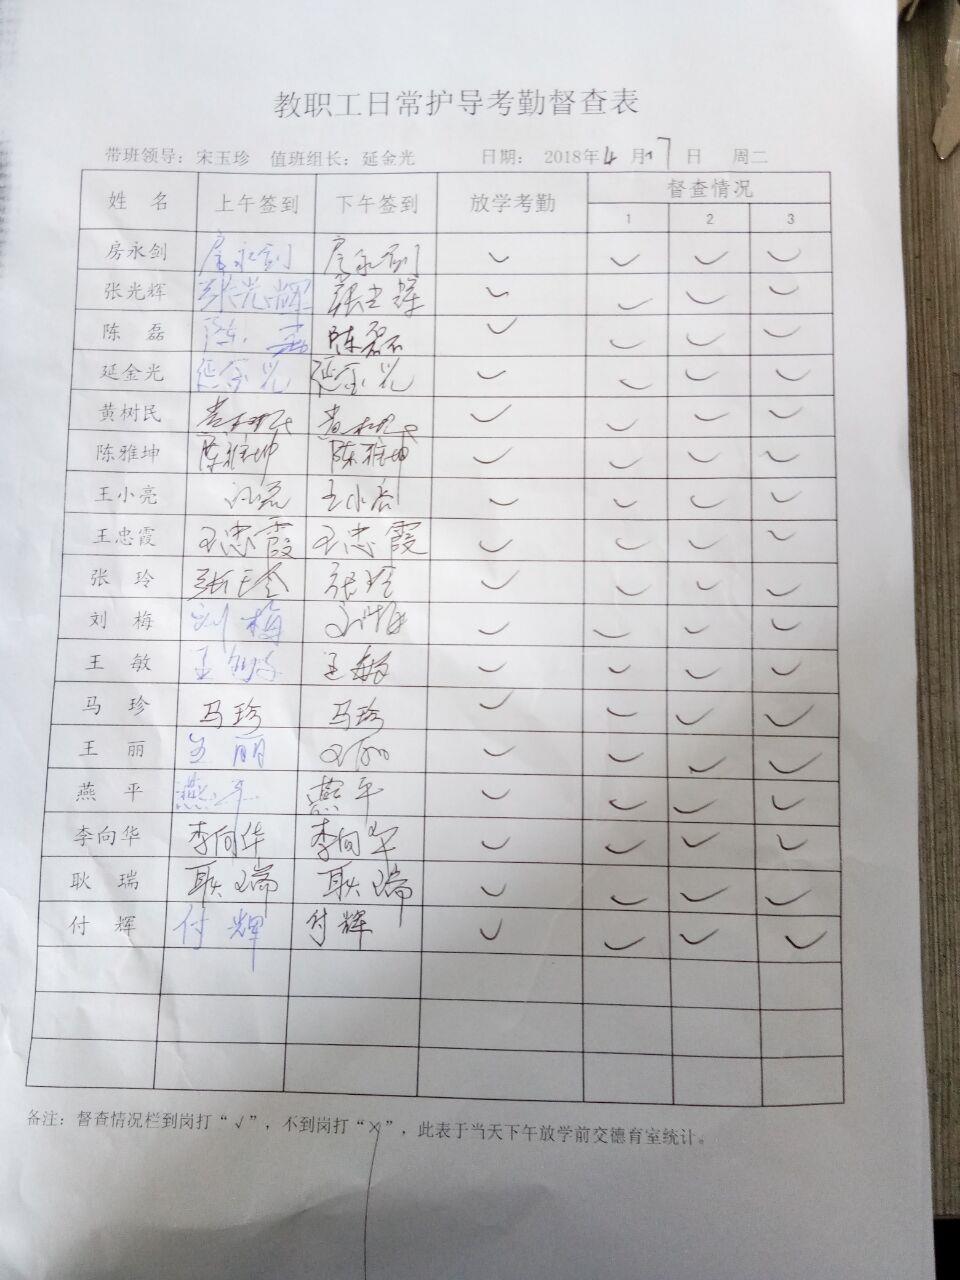 教职工日常护导考勤督查表
带班领导：宋玉珍 值班组长：延金光 日期： 2018年4月17日 周二
姓 名 上午签到 下午签到 放学考勤 督查情况
1 2 3
房永剑 房永剑 房永剑 ✓ ✓ ✓ ✓
张光辉 张光辉 张光辉 ✓ ✓ ✓ ✓
陈 磊 陈磊 陈磊 ✓ ✓ ✓ ✓
延金光 延金光 延金光 ✓ ✓ ✓ ✓
黄树民 黄树民 黄树民 ✓ ✓ ✓ ✓
陈雅坤 陈雅坤 陈雅坤 ✓ ✓ ✓ ✓
王小亮 王小亮 ✓ ✓ ✓ ✓
王忠霞 王忠霞 王忠霞 ✓ ✓ ✓ ✓
张 玲 张玲 张玲 ✓ ✓ ✓ ✓
刘 梅 刘梅 刘梅 ✓ ✓ ✓ ✓
王 敏 王敏 王敏 ✓ ✓ ✓ ✓
马 珍 马珍 马珍 ✓ ✓ ✓ ✓
王 丽 王丽 王丽 ✓ ✓ ✓ ✓
燕 平 燕平 燕平 ✓ ✓ ✓ ✓
李向华 李向华 李向华 ✓ ✓ ✓ ✓
耿 瑞 耿瑞 耿瑞 ✓ ✓ ✓ ✓
付 辉 付辉 付辉 ✓ ✓ ✓ ✓
备注：督查情况栏到岗打“√”，不到岗打“×”，此表于当天下午放学前交德育室统计。